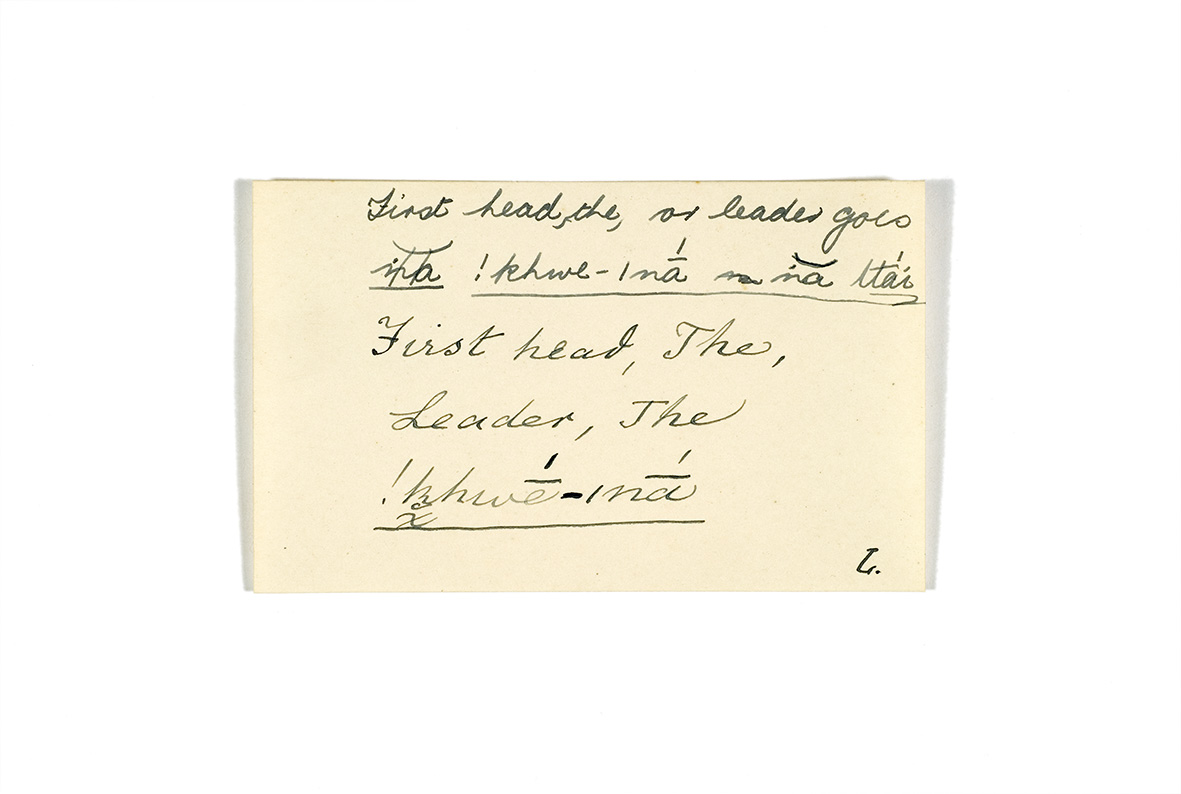 First head, the, or leader goes
!khwe-ǀnā́ n̄a ttái
First head, The,
Leader, The
!khwḗ-ǀnā́
L.